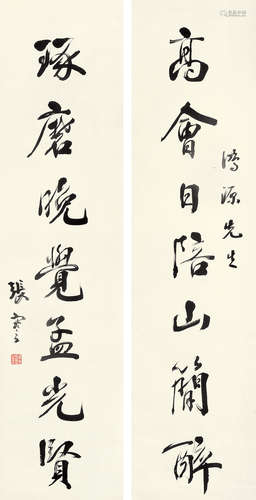 高會日陪山簡醉
源先生
琢磨晚覺孟光賢
張